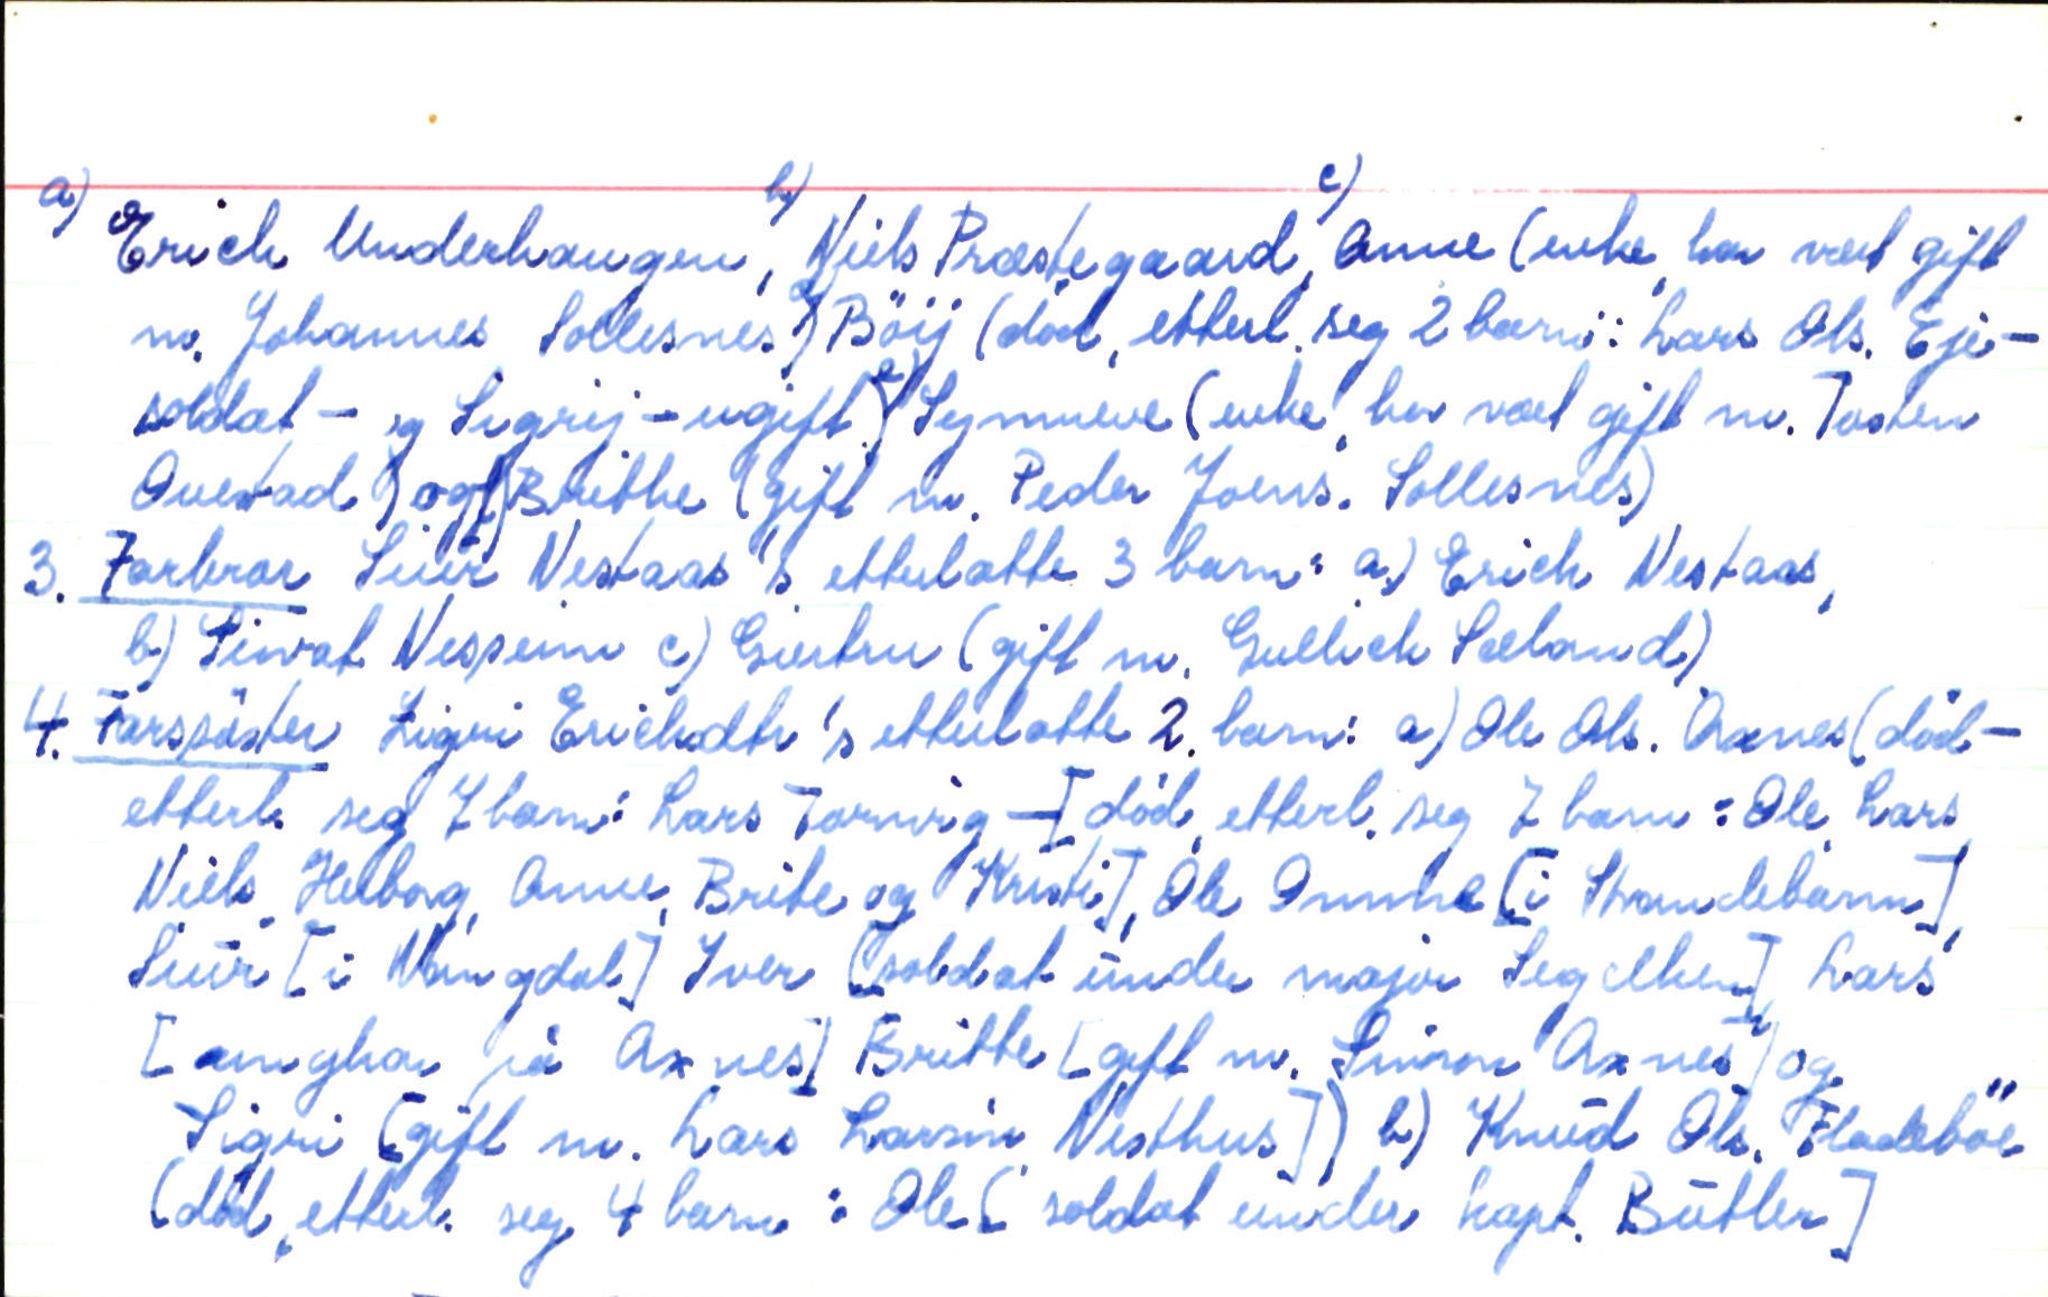 a) Erich Underhaugen, b) Niels Præstegaard, c) Anne (enke, har vært gift
m. Johannes Sollesnes) d) Böij (död, etterl. seg 2 barn: Lars Ols. Eje-
soldat - og Sigrij - ugift) e) Synneve (enke, har vært gift m. Tosten
Questad) og f) Brithe (gift m. Peder Joens. Sollesnes)
3. Farbror Siur Nestaas's etterlatte 3 barn: a) Erich Nestaas,
b) Siwat Nesseim c) Giertru (gift m. Gullich Sæland)
4. Farssöster Zigri Erichsdtr's etterlatte 2 barn: a) Ole Ols. Axnes (död -
etterl. seg 7 barn: Lars Tornvig - [död, etterl. seg 7 barn: Ole, Lars,
Niels, Helborg, Anne, Brite og Kristi], Ole [i Strandebarm],
Siur [i Wangdal] Iver [soldat under major Segelken], Lars
[på Axnes] Britte [gift m. Simon Axnes] og
Sigri [gift m. Lars Larsen Nesthus]) b) Knud Ols. Fladeböe
(död, etterl. seg 4 barn: Ole [soldat under kapt. Bütler]